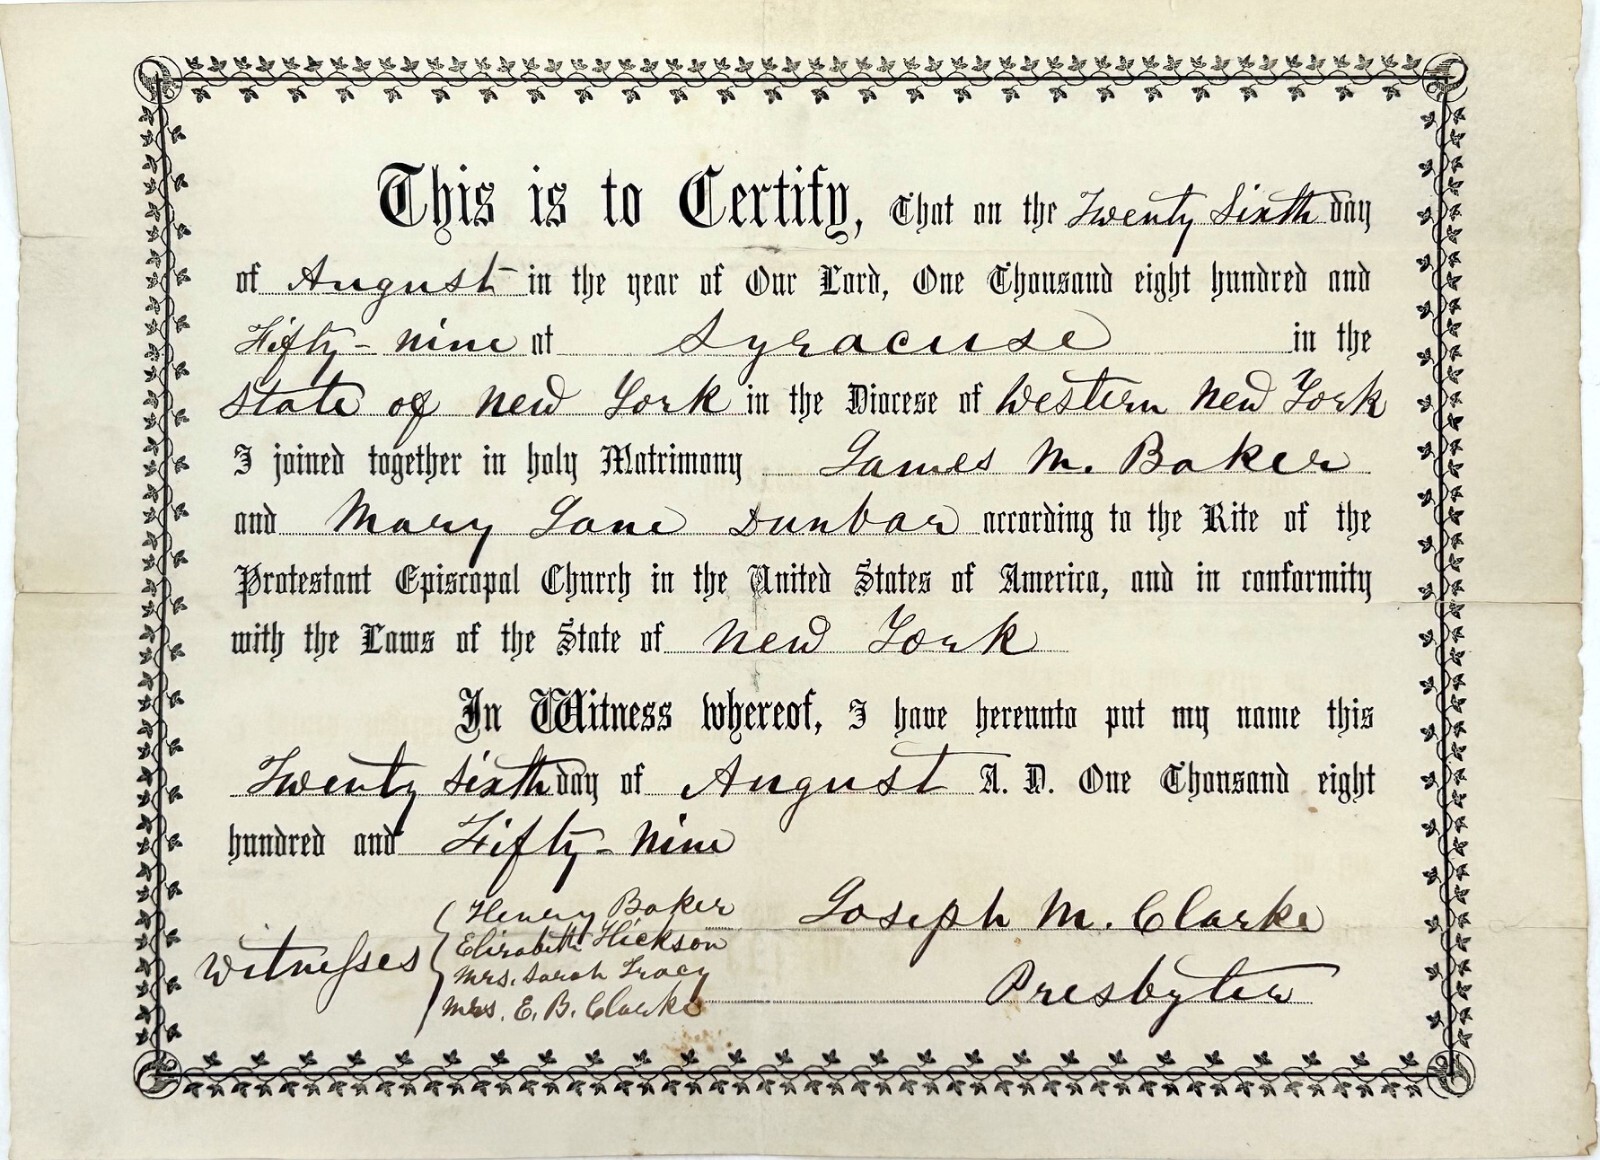 This is to Certify, That on the Twenty Sixth day
of August in the year of Our Lord, One Thousand eight hundred and
Fifty-nine at Syracuse in the
State of New York in the Diocese of Western New York
I joined together in holy Matrimony James M. Baker
and Mary Jane Dunbar according to the Rite of the
Protestant Episcopal Church in the United States of America, and in conformity
with the Laws of the State of New York
In Witness whereof, I have hereunto put my name this
Twenty Sixth day of August A. D. One Thousand eight
hundred and Fifty-Nine
Witnesses
Henry Baker
Elizabeth Hickson
Mrs. Sarah Tracy
Mrs. E. B. Clarke
Joseph M. Clarke
Presbyter